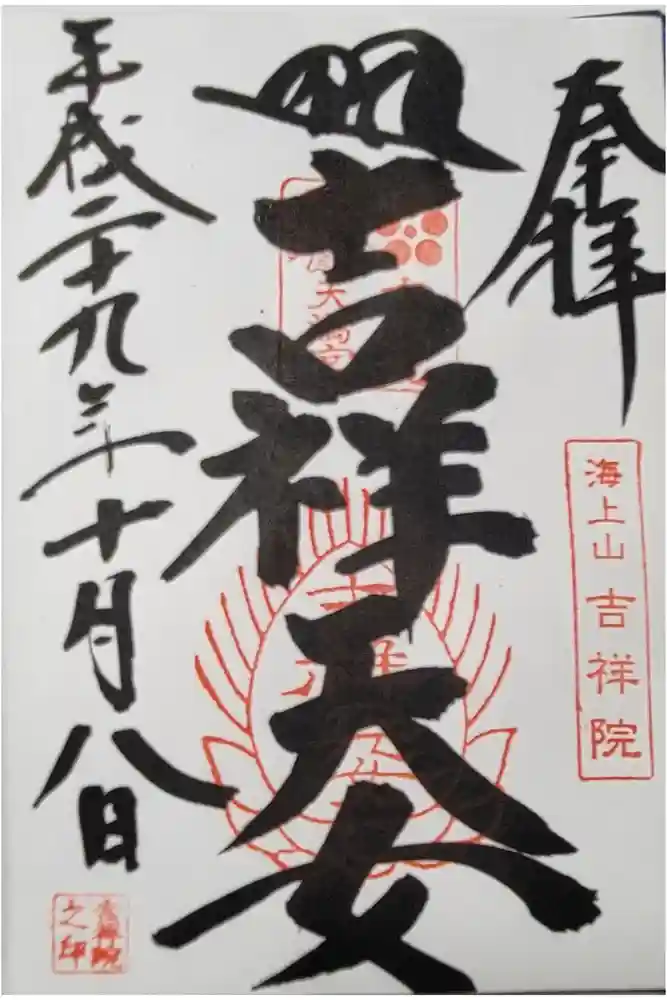 奉拝
海上山 吉祥院
吉祥天女
平成二十九年十月八日
吉祥院
之印